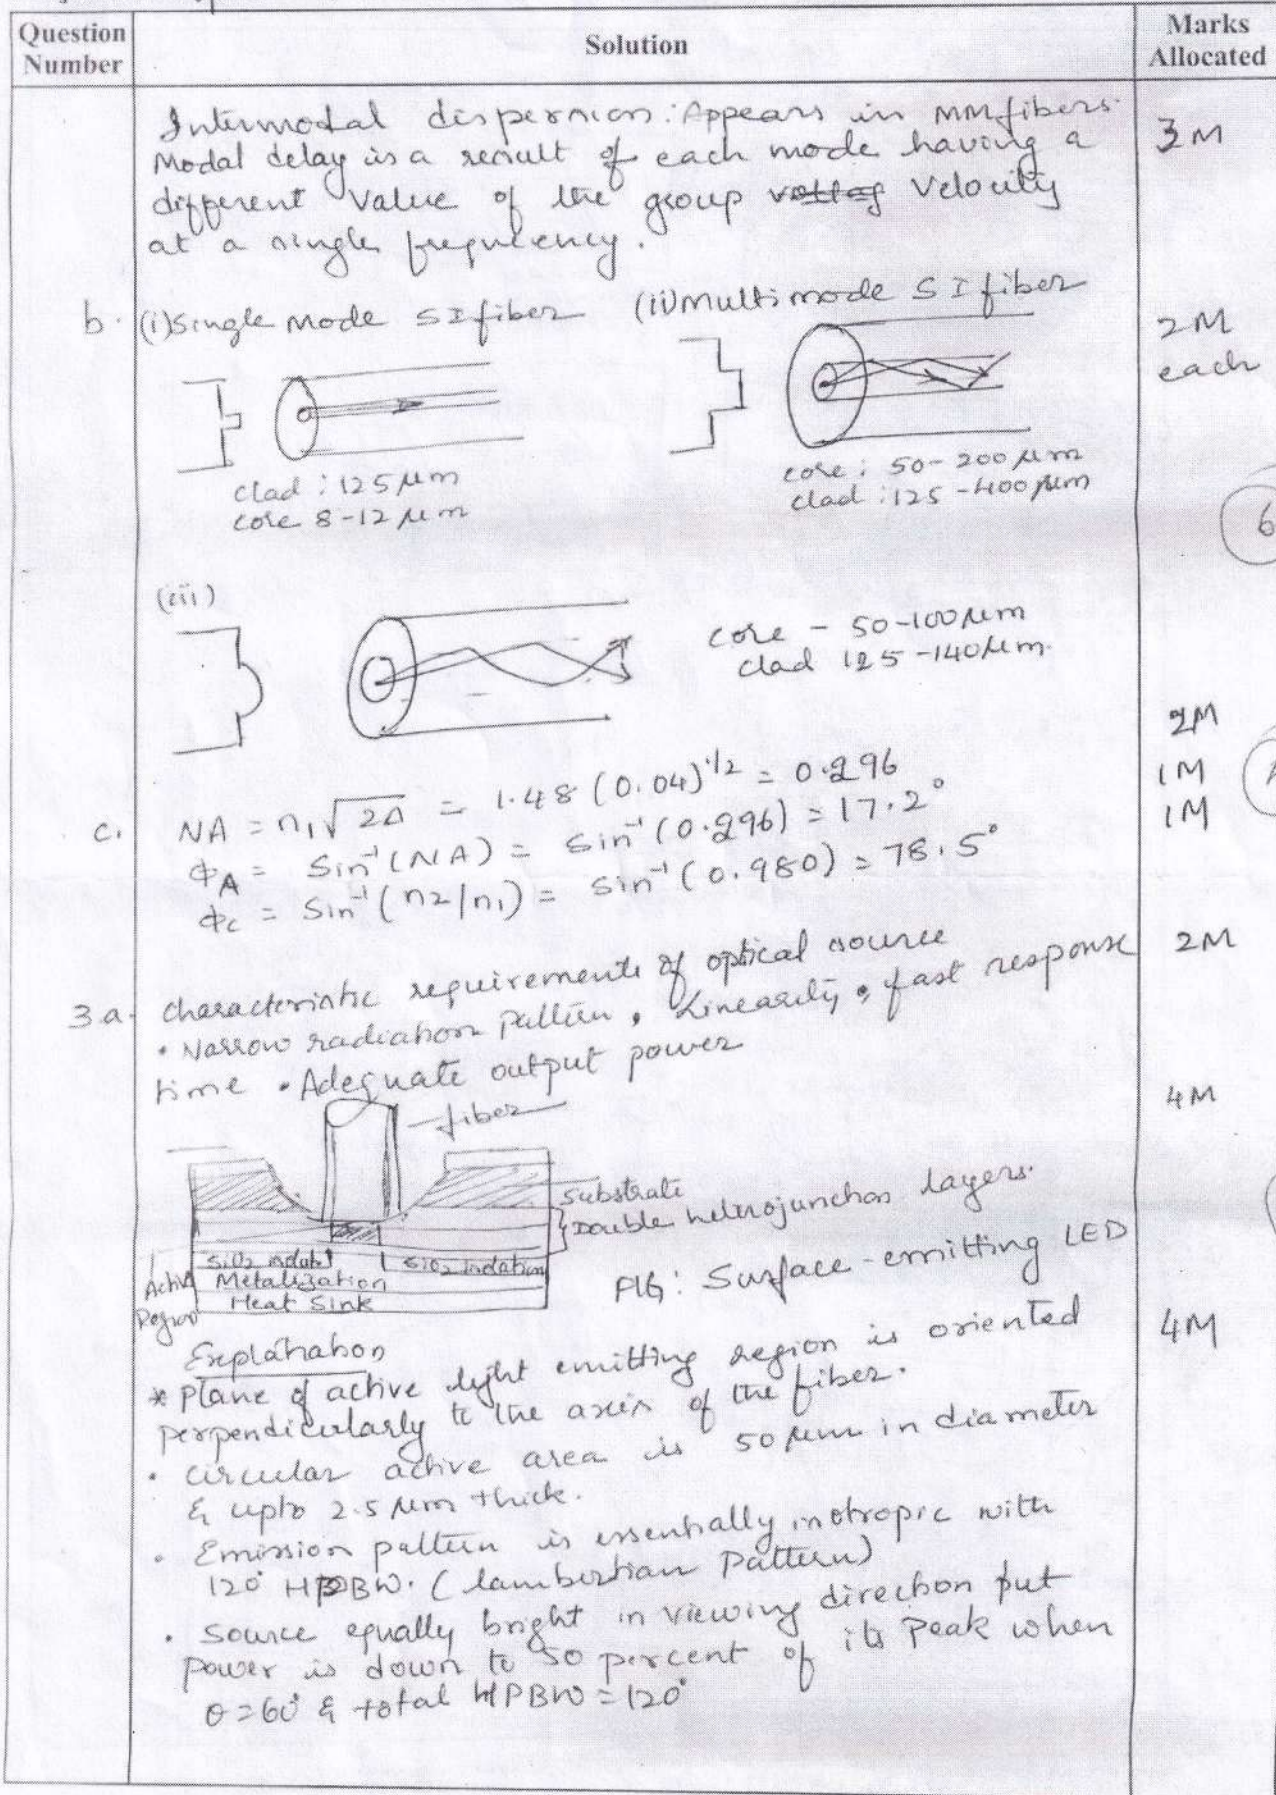 Question Number
Solution
Marks Allocated
Intermodal dispersion: Appears in MM fibers.
3M
Modal delay is a result of each mode having a
different value of the group velocity
at a single frequency.
b. (i) Single Mode SI fiber (ii) Multimode SI fiber
2M
each
clad : 125 μm
core 8-12 μm
core : 50-200 μm
clad : 125-400 μm
6
(iii)
core - 50-100 μm
clad 125-140 μm.
2M
c. NA = n1√2Δ = 1.48 (0.04)^1/2 = 0.296
1M
ΦA = Sin^-1(NA) = Sin^-1(0.296) = 17.2°
1M
Φc = Sin^-1(n2/n1) = Sin^-1(0.980) = 78.5°
3.a. Characteristic requirements of optical source
2M
• Narrow radiation pattern, Linearity, fast response
time • Adequate output power
4M
fiber
Substrate
Double heterojunction layers.
SiO2 SiO2 Isolation
Active Region
Metalization
Heat Sink
FIG: Surface-emitting LED
Explanation
4M
* Plane of active light emitting region is oriented
perpendicularly to the axis of the fiber.
• Circular active area is 50 μm in diameter
& upto 2.5 μm thick.
• Emission pattern is essentially isotropic with
120° HPBW. (lambertian Pattern)
• Source equally bright in viewing direction but
power is down to 50 percent of its Peak when
θ=60° & total HPBW = 120°